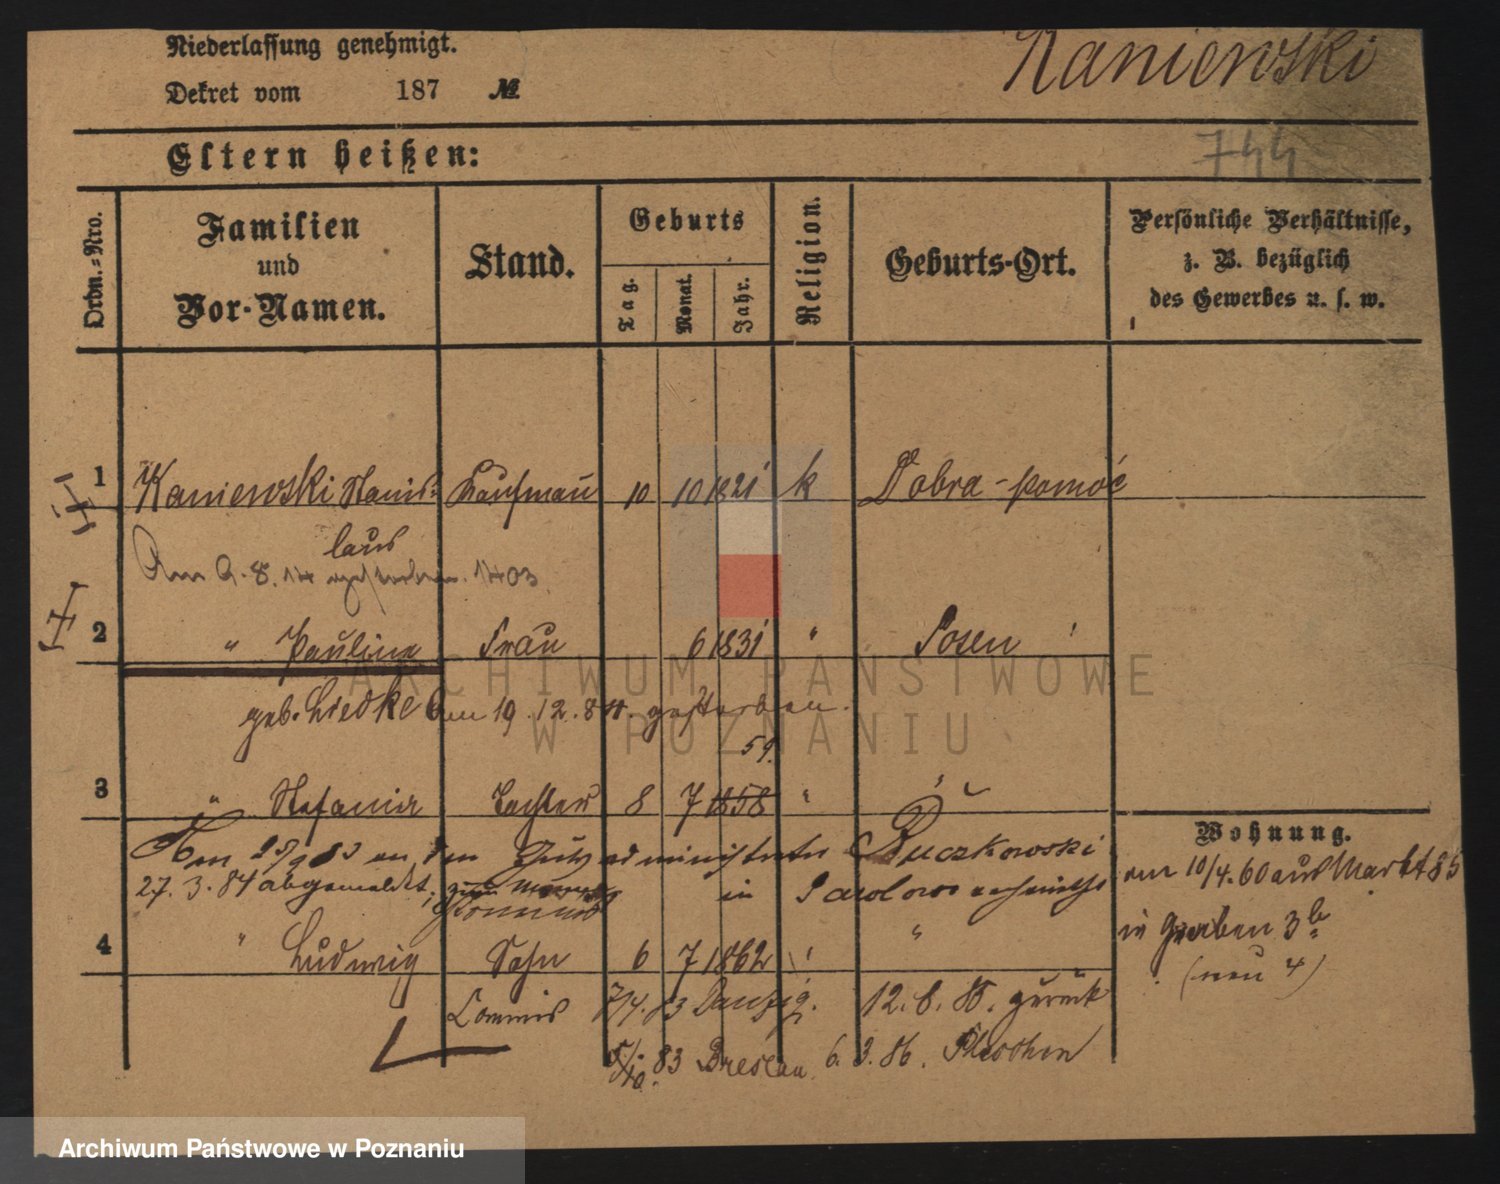 Niederlassung genehmigt.
Dekret vom 187 №
Kaniewski
744
Eltern heißen:
Ordn.-Nro.
Familien
und
Vor-Namen.
Stand.
Geburts
Tag.
Monat.
Jahr.
Religion.
Geburts-Ort.
Persönliche Verhältnisse,
z. B. bezüglich
des Gewerbes u. s. w.
1 Kaniewski Stanis- Kaufmann 10 10 1821 k Dobra-pomoc
laus
Am 9.8.14 gestorben. 1403
2 " Pauline Frau 6 1831 " Posen
geb. Liedke Am 19.12.88. gestorben.
59.
3 " Stefanie Tochter 8 7 1858 "
Wohnung.
Am 28/9 83 an den administrator Buczkowski
27.3.84 abgemeldet, in
am 10/4.60 aus Markt 85
in Graben 3b
(neu 4)
4 " Ludwig Sohn 6 7 1862 "
Commis 7/4.83 Danzig. 12.6.85. zurück
5/10.83 Breslau 6.3.86. Pleschen
ARCHIWUM PAŃSTWOWE
W POZNANIU
Archiwum Państwowe w Poznaniu